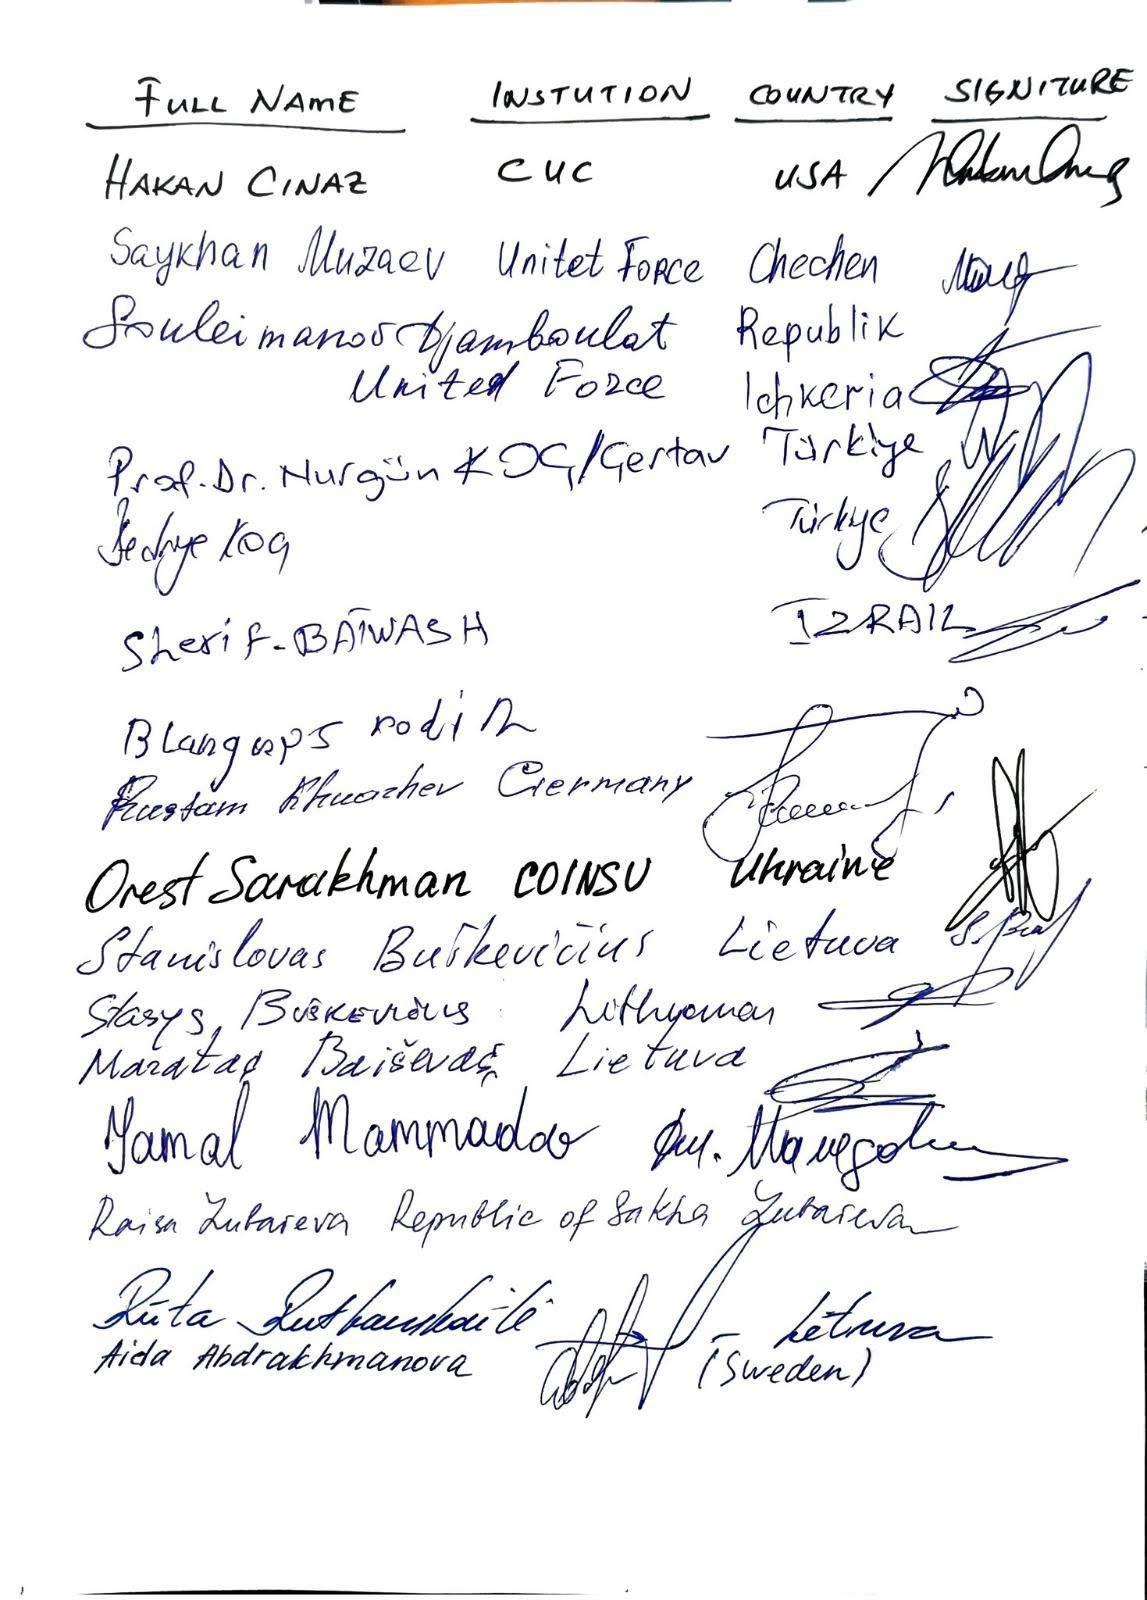 FULL NAME INSTUTION COUNTRY SIGNITURE
HAKAN CINAZ CUC USA
Saykhan Muzaev Unitet Force Chechen
Souleimanov Djamboulat Republik
United Force Ichkeria
Prof. Dr. Nurgün KOÇ/Gertav Türkiye
Koç Türkye
Sherif-BATWASH IZRAIL
Rustam Germany
Orest Sarakhman COINSU Ukraine
Stanislovas Buškevičius Lietuva
Stasys Buškevičius
Lietuva
Jamal Mammadov
Raisa Zubaieva Republic of Sakha Zubaieva
Rūta Lietuva
Aida Abdrakhmanova (Sweden)